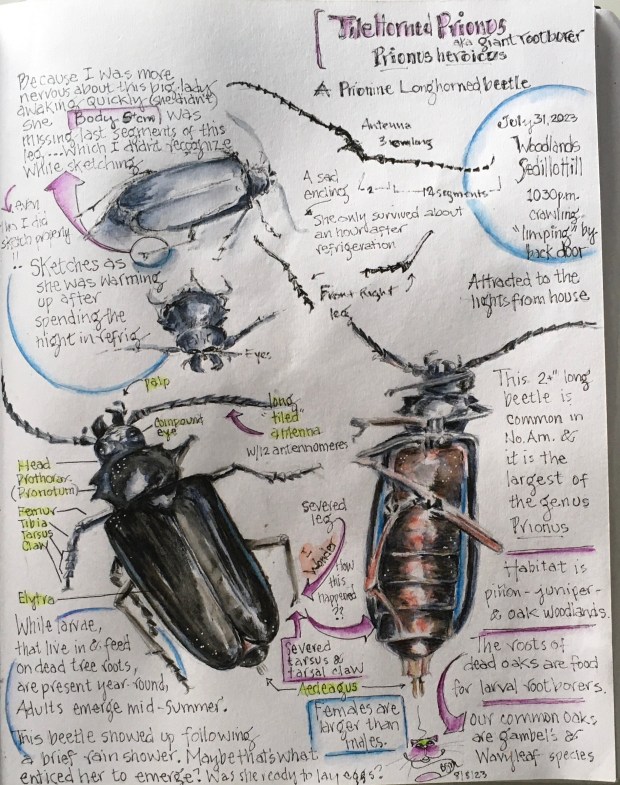 Tile Horned Prionus
aka giant root borer
Prionus heroicus
A Prionine Longhorned beetle
Because I was more
nervous about this big lady
awaking quickly (she didn't)
she Body 5cm was
missing last segments of this
leg....which I didn't recognize
while sketching
even
tho I did
sketch properly
!!
Antenna
3 cm long
A sad
ending
2
12 segments
She only survived about
an hour after
refrigeration
July 31, 2023
Woodlands
Sedillo Hill
1030 p.m.
crawling
"limping" by
back door
Attracted to the
lights from house
Sketches as
she was warming
up after
spending the
night in refrig
Front Right
leg
Eyes
Palp
compound
eye
long
"tiled"
antenna
w/12 antennomeres
Head
Prothorax
(Pronotum)
Femur
Tibia
Tarsus
Claw
Elytra
severed
leg
I
Wonder
How
this
happened
??
severed
tarsus &
tarsal claw
Aedeagus
This 2+" long
beetle is
common in
No. Am. &
it is the
largest of
the genus
Prionus
Habitat is
piñon-juniper-
& oak woodlands.
The roots of
dead oaks are food
for larval rootborers.
Our common oaks
are gambel's or
Wavyleaf species
While larvae,
that live in & feed
on dead tree roots,
are present year-round,
Adults emerge mid-summer.
Females are
larger than
males.
This beetle showed up following
a brief rain shower. Maybe that's what
enticed her to emerge? Was she ready to lay eggs?
8/8/23